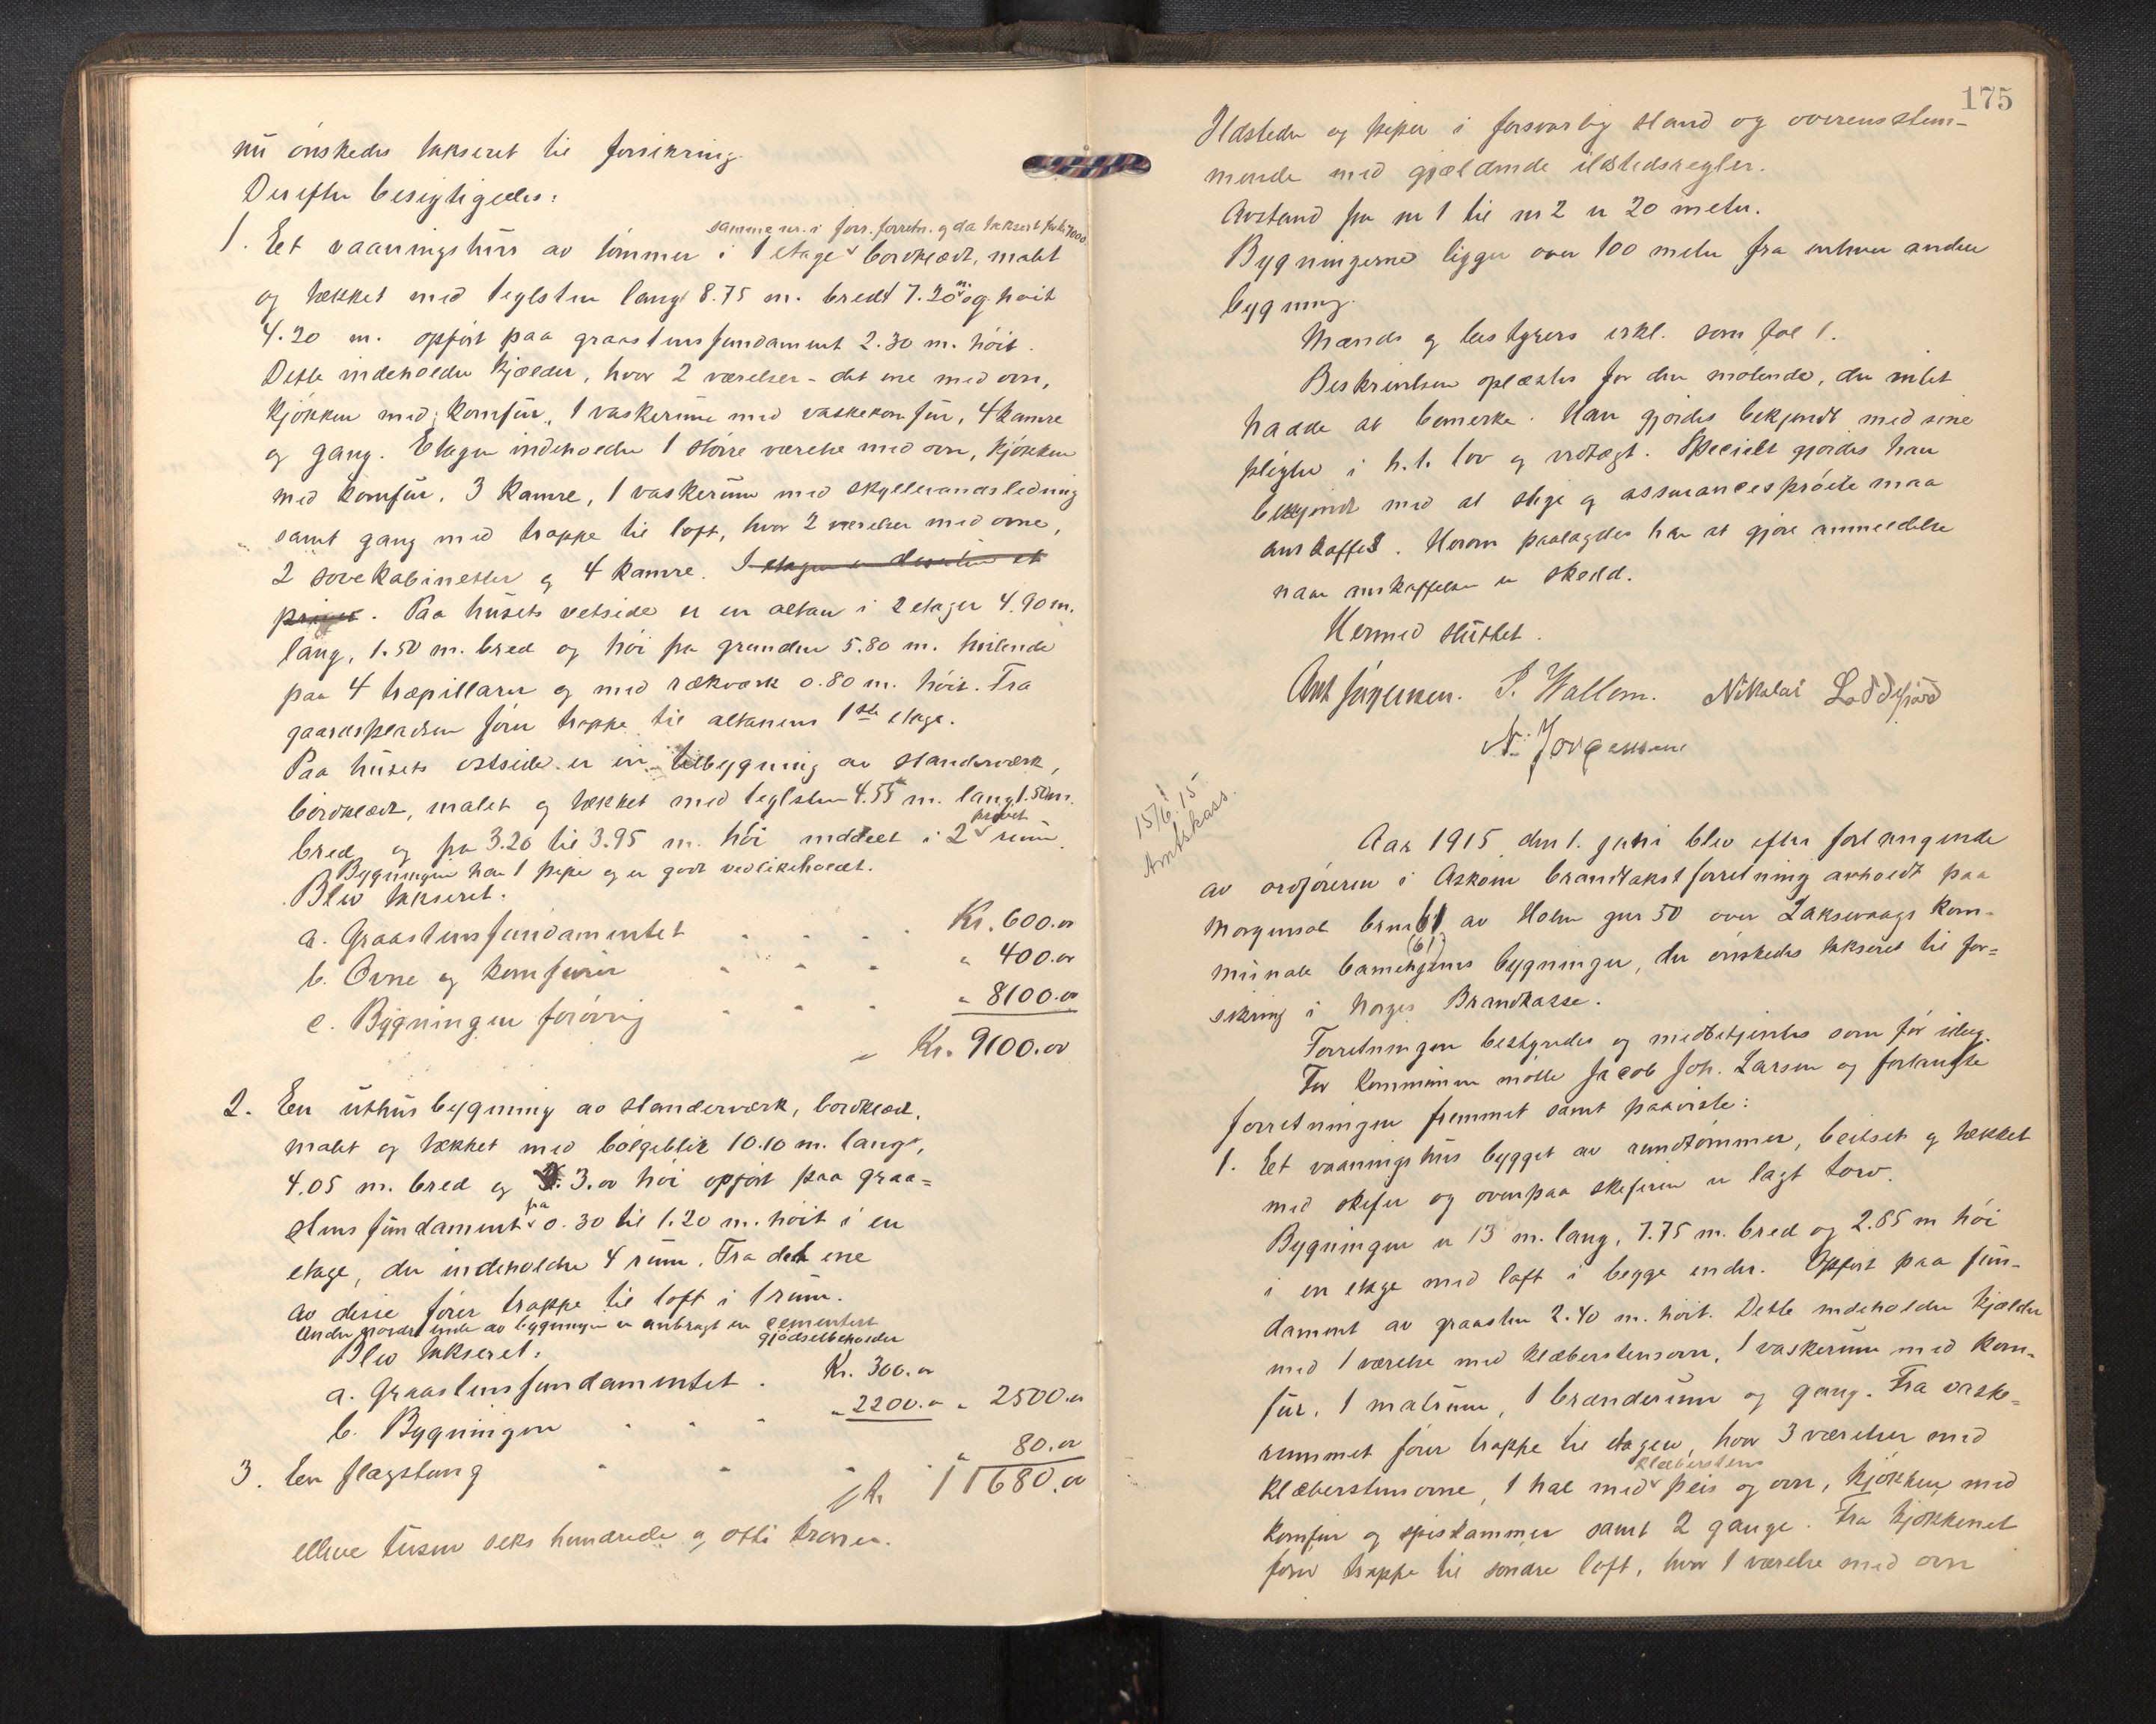 nu ønskedes takseret til forsikring.
Derefter besigtigedes:
samme nr. i forr. forretn. og da takseret for kr. 7000.
1. Et vaaningshus av tømmer i 1 etage bordklædt, malt
og tækket med teglsten langt 8.75 m. bredt 7.20 m. og høit
4.20 m. opført paa graastensfundament 2.30 m. høit.
Dette indeholder kjælder, hvor 2 værelser - det ene med ovn,
kjøkken med komfür, 1 vaskerum med vaskekomfür, 4 kamre
og gang. Etagen indeholder 1 større værelse med ovn, kjøkken
med komfür, 3 kamre, 1 vaskerum med skyllevandsledning
samt gang med trappe til loft, hvor 2 værelser med ovne,
2 sovekabinetter og 4 kamre. I etagen er desuten et
priget. Paa husets vetside er en altan i 2 etager 4.90 m.
lang, 1.50 m. bred og høi fra grunden 5.80 m. hvilende
paa 4 træpillarer og med rækværk 0.80 m. høit. Fra
gaardspladsen fører trappe til altanens 1ste etage.
Paa husets østside er en tilbygning av standerværk,
bordklædt, malet og tækket med teglsten 4.55 m. lang, 1.50 m.
bred og fra 3.20 til 3.95 m. høi inddelt i 2 privet rum.
Bygningen har 1 pipe og er godt vedlikeholdt.
Blev takseret:
a. Graastensfundamentet . . . . Kr. 600.00
b. Ovne og komfürer . . . " 400.00
c. Bygningen forøvrig . . . " 8100.00
" Kr. 9100.00
2. En uthusbygning av standerværk, bordklædt,
malt og tækket med bølgeblik 10.10 m. lang,
4.05 m. bred og 3.00 høi opført paa graa=
stensfundament fra 0.30 til 1.20 m. høit i en
etage, der indeholder 4 rum. Fra det ene
av disse fører trappe til loft i 1 rum.
Under nordre ende av bygningen er anbragt en cementert
gjødselbeholder
Blev takseret:
a. Graastensfundamentet . Kr. 300.00
b. Bygningen . . . " 2200.00 " 2500.00
3. En flagstang . . . . " 80.00
Kr. 11680.00
elleve tusen seks hundrede og otti kroner.
175
Ildsteder og piper i forsvarlig stand og overensstem-
mende med gjældende ildstedsregler.
Avstand fra nr 1 til nr 2 er 20 meter.
Bygningerne ligger over 100 meter fra enhver anden
bygning.
Mænds og bestyrers erkl. som fol 1.
Beskrivelsen oplæstes for den møtende, der intet
hadde at bemerke. Han gjordes bekjendt med sine
pligter i h.t. lov og vedtægt. Specielt gjordes han
bekjendt med at stige og assurancesprøite maa
anskaffes. Herom paalagdes han at gjøre anmeldelse
naar anskaffelsen er skedd.
Hermed sluttet.
Ant Jørgensen. J. Wallem. Nikolai Loddefjord
N. Jørgensen
15/6 15
Amtskass.
Aar 1915 den 1. juni blev efter forlangende
av ordføreren i Askøen brandtakstforretning avholdt paa
Morgensol brnr 61 (61) av Holm gnr 50 over Laksevaags kom-
munale barnehjems bygninger, der ønskedes takseret til for=
sikring i Norges Brandkasse.
Forretningen bestyredes og medbetjentes som før idag.
For kommunen møtte Jacob Joh. Larsen og forlangte
forretningen fremmet samt paaviste:
1. Et vaaningshus bygget av rundtømmer, beitset og tækket
med skifer og ovenpaa skiferen er lagt torv.
Bygningen er 13 m. lang, 7.75 m. bred og 2.85 m høi
i en etage med loft i begge ender. Opført paa fun-
dament av graasten 2.40 m. høit. Dette indeholder kjælder
med 1 værelse med klæberstensovn, 1 vaskerum med kom-
für, 1 matrum, 1 brænderum og gang. Fra vaske=
rummet fører trappe til etagen, hvor 3 værelser med
klæberstensovne, 1 hal med klæberstens peis og ovn, kjøkken med
komfür og spiskammer samt 2 gange. Fra kjøkkenet
fører trappe til søndre loft, hvor 1 værelse med ovn